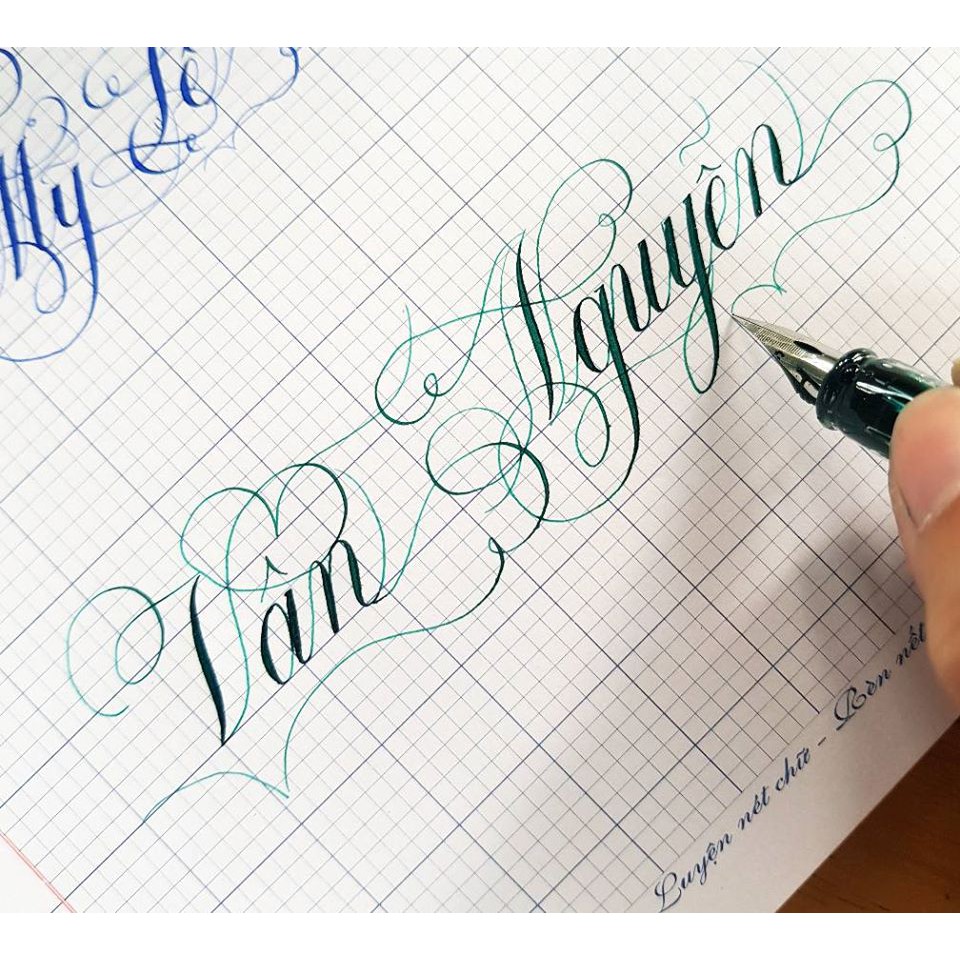 Vân Nguyễn
Luyện nét chữ - Rèn nết